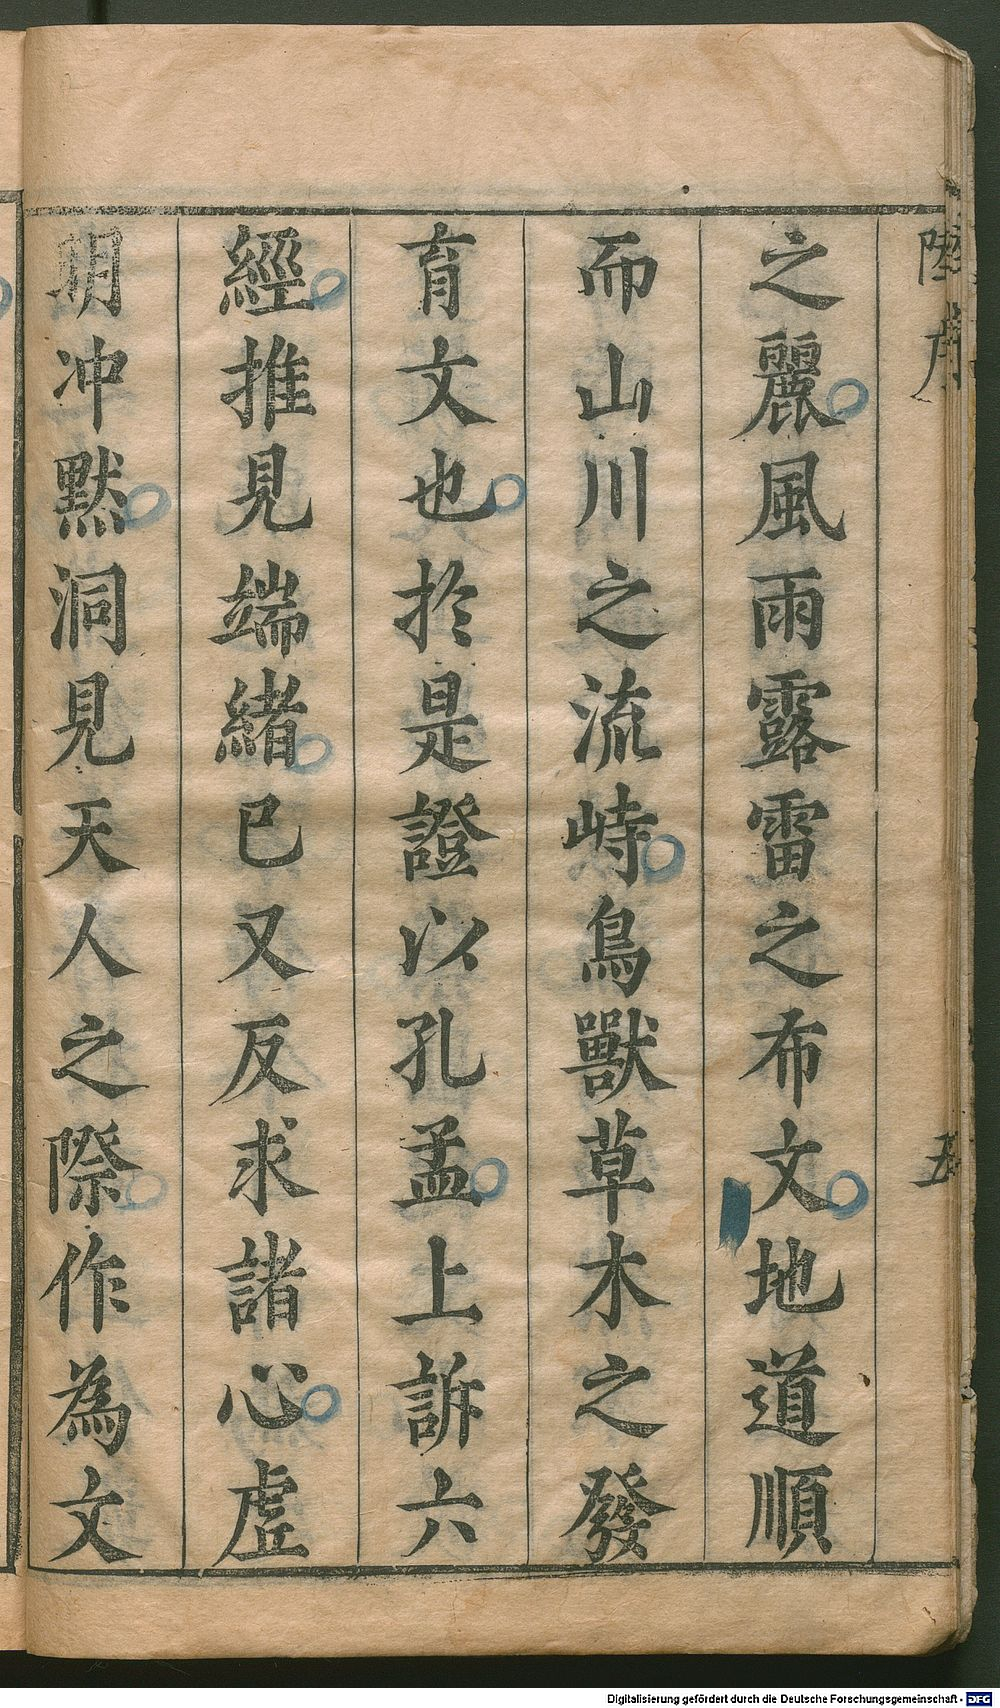 之麗風雨露雷之布文地道順
而山川之流峙鳥獸草木之發
育文也於是證以孔孟上訴六
經推見端緒已又反求諸心虛
明冲黙洞見天人之際作為文
五
Digitalisierung gefördert durch die Deutsche Forschungsgemeinschaft - DFG